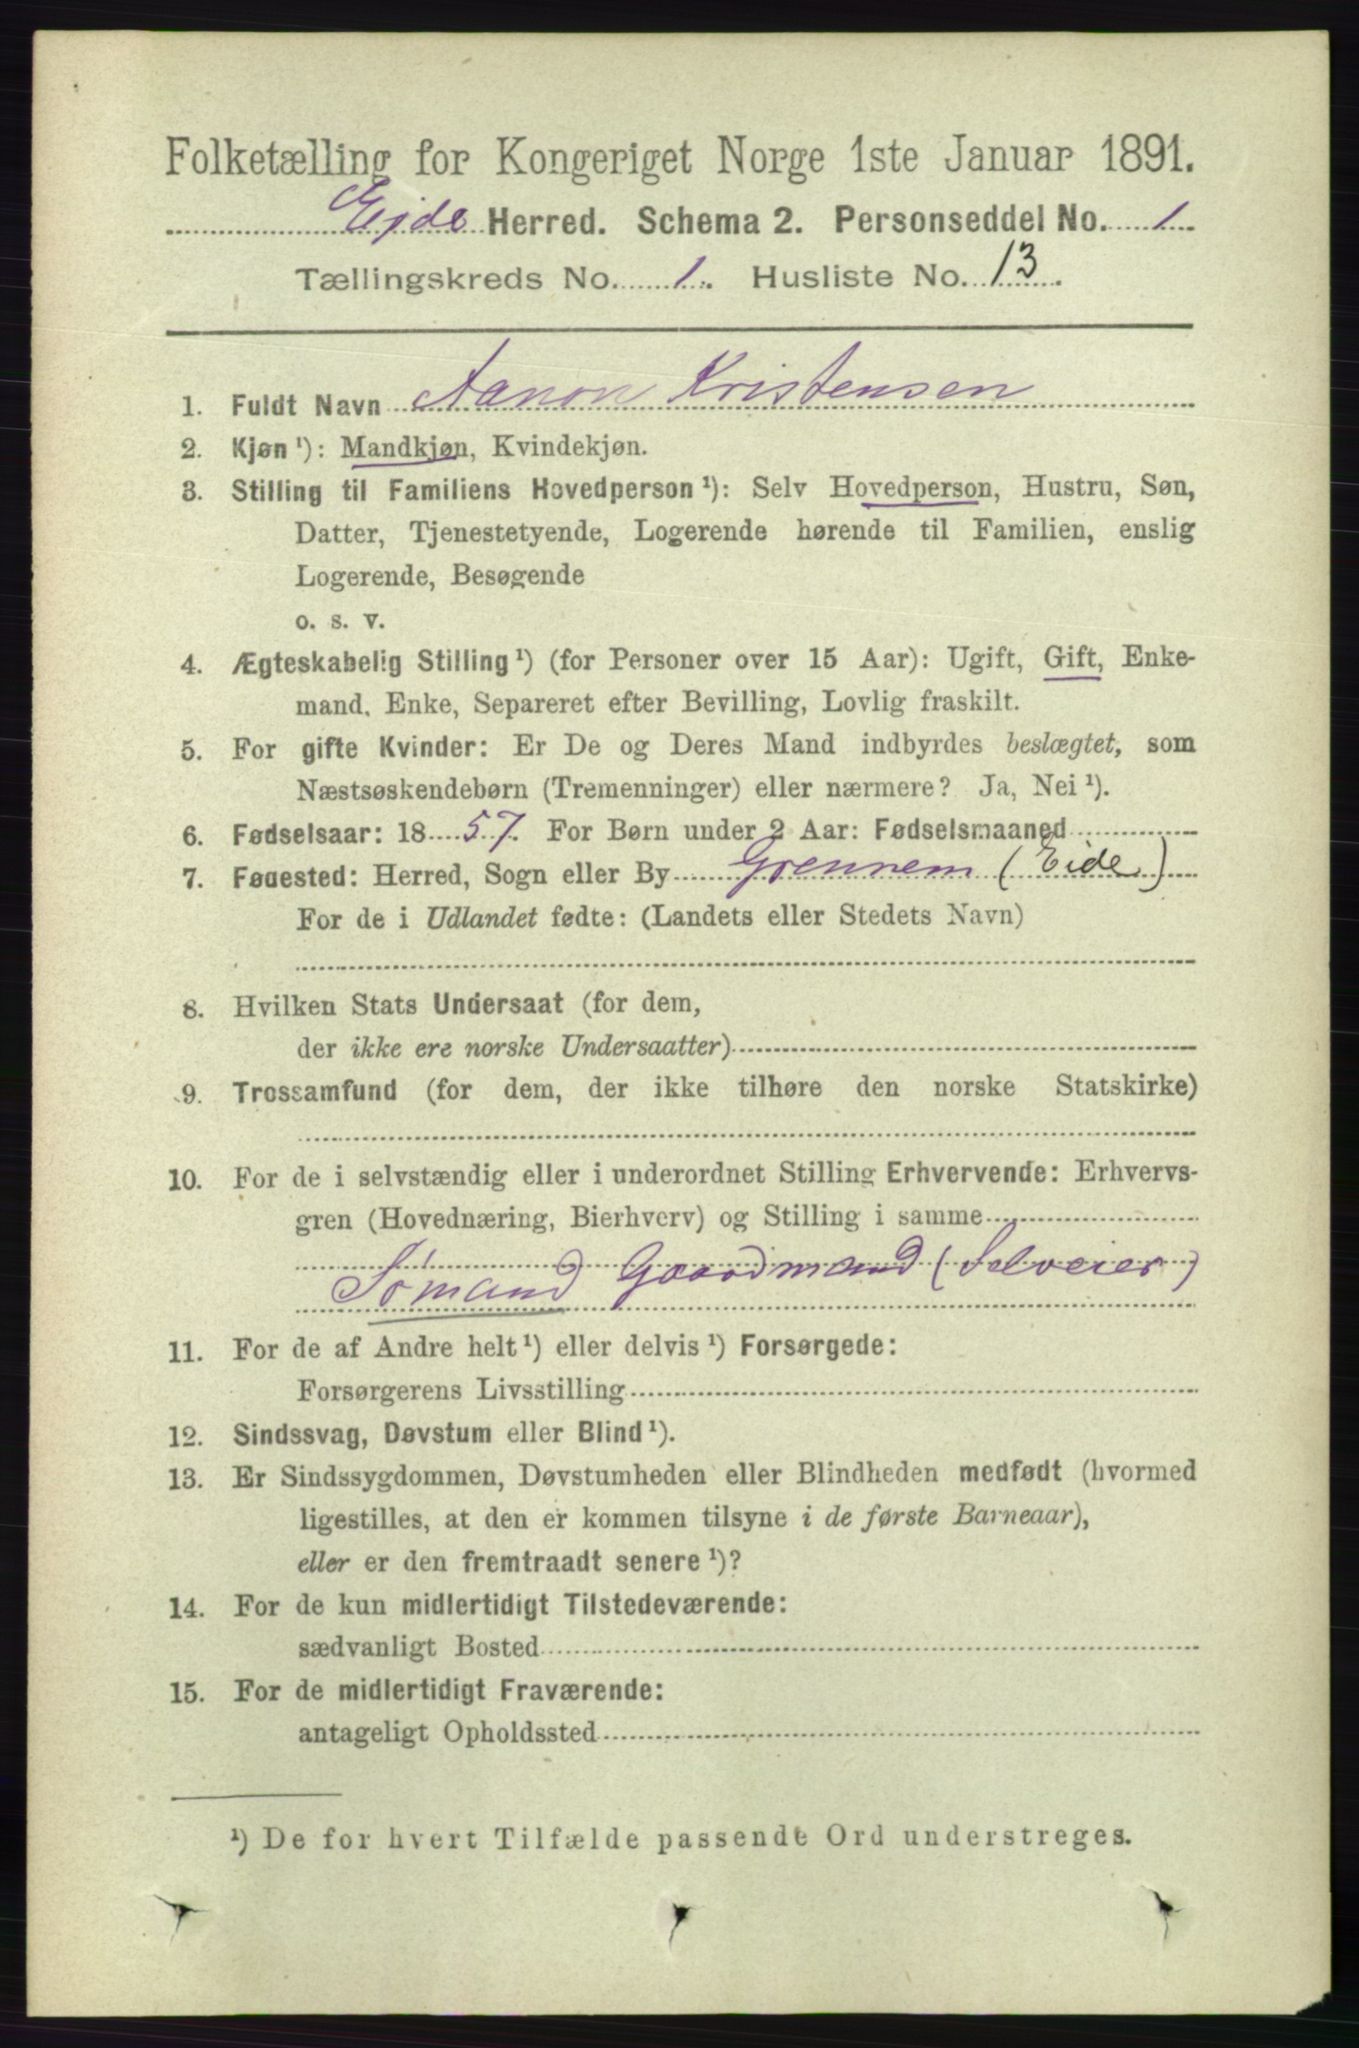 Folketælling for Kongeriget Norge 1ste Januar 1891.
Ejde Herred. Schema 2. Personseddel No. 1
Tællingskreds No. 1. Husliste No. 13.
1. Fuldt Navn Aanon Kristensen
2. Kjøn ¹): Mandkjøn, Kvindekjøn.
3. Stilling til Familiens Hovedperson ¹): Selv Hovedperson, Hustru, Søn,
Datter, Tjenestetyende, Logerende hørende til Familien, enslig
Logerende, Besøgende
o. s. v.
4. Ægteskabelig Stilling ¹) (for Personer over 15 Aar): Ugift, Gift, Enke-
mand, Enke, Separeret efter Bevilling, Lovlig fraskilt.
5. For gifte Kvinder: Er De og Deres Mand indbyrdes beslægtet, som
Næstsøskendebørn (Tremenninger) eller nærmere? Ja, Nei ¹).
6. Fødselsaar: 1857. For Børn under 2 Aar: Fødselsmaaned
7. Fødested: Herred, Sogn eller By Grennem (Eide)
For de i Udlandet fødte: (Landets eller Stedets Navn)
8. Hvilken Stats Undersaat (for dem,
der ikke ere norske Undersaatter)
9. Trossamfund (for dem, der ikke tilhøre den norske Statskirke)
10. For de i selvstændig eller i underordnet Stilling Erhvervende: Erhvervs-
gren (Hovednæring, Bierhverv) og Stilling i samme
Sømand Gaardmand (Selveier)
11. For de af Andre helt ¹) eller delvis ¹) Forsørgede:
Forsørgerens Livsstilling
12. Sindssvag, Døvstum eller Blind ¹).
13. Er Sindssygdommen, Døvstumheden eller Blindheden medfødt (hvormed
ligestilles, at den er kommen tilsyne i de første Barneaar),
eller er den fremtraadt senere ¹)?
14. For de kun midlertidigt Tilstedeværende:
sædvanligt Bosted
15. For de midlertidigt Fraværende:
antageligt Opholdssted
¹) De for hvert Tilfælde passende Ord understreges.